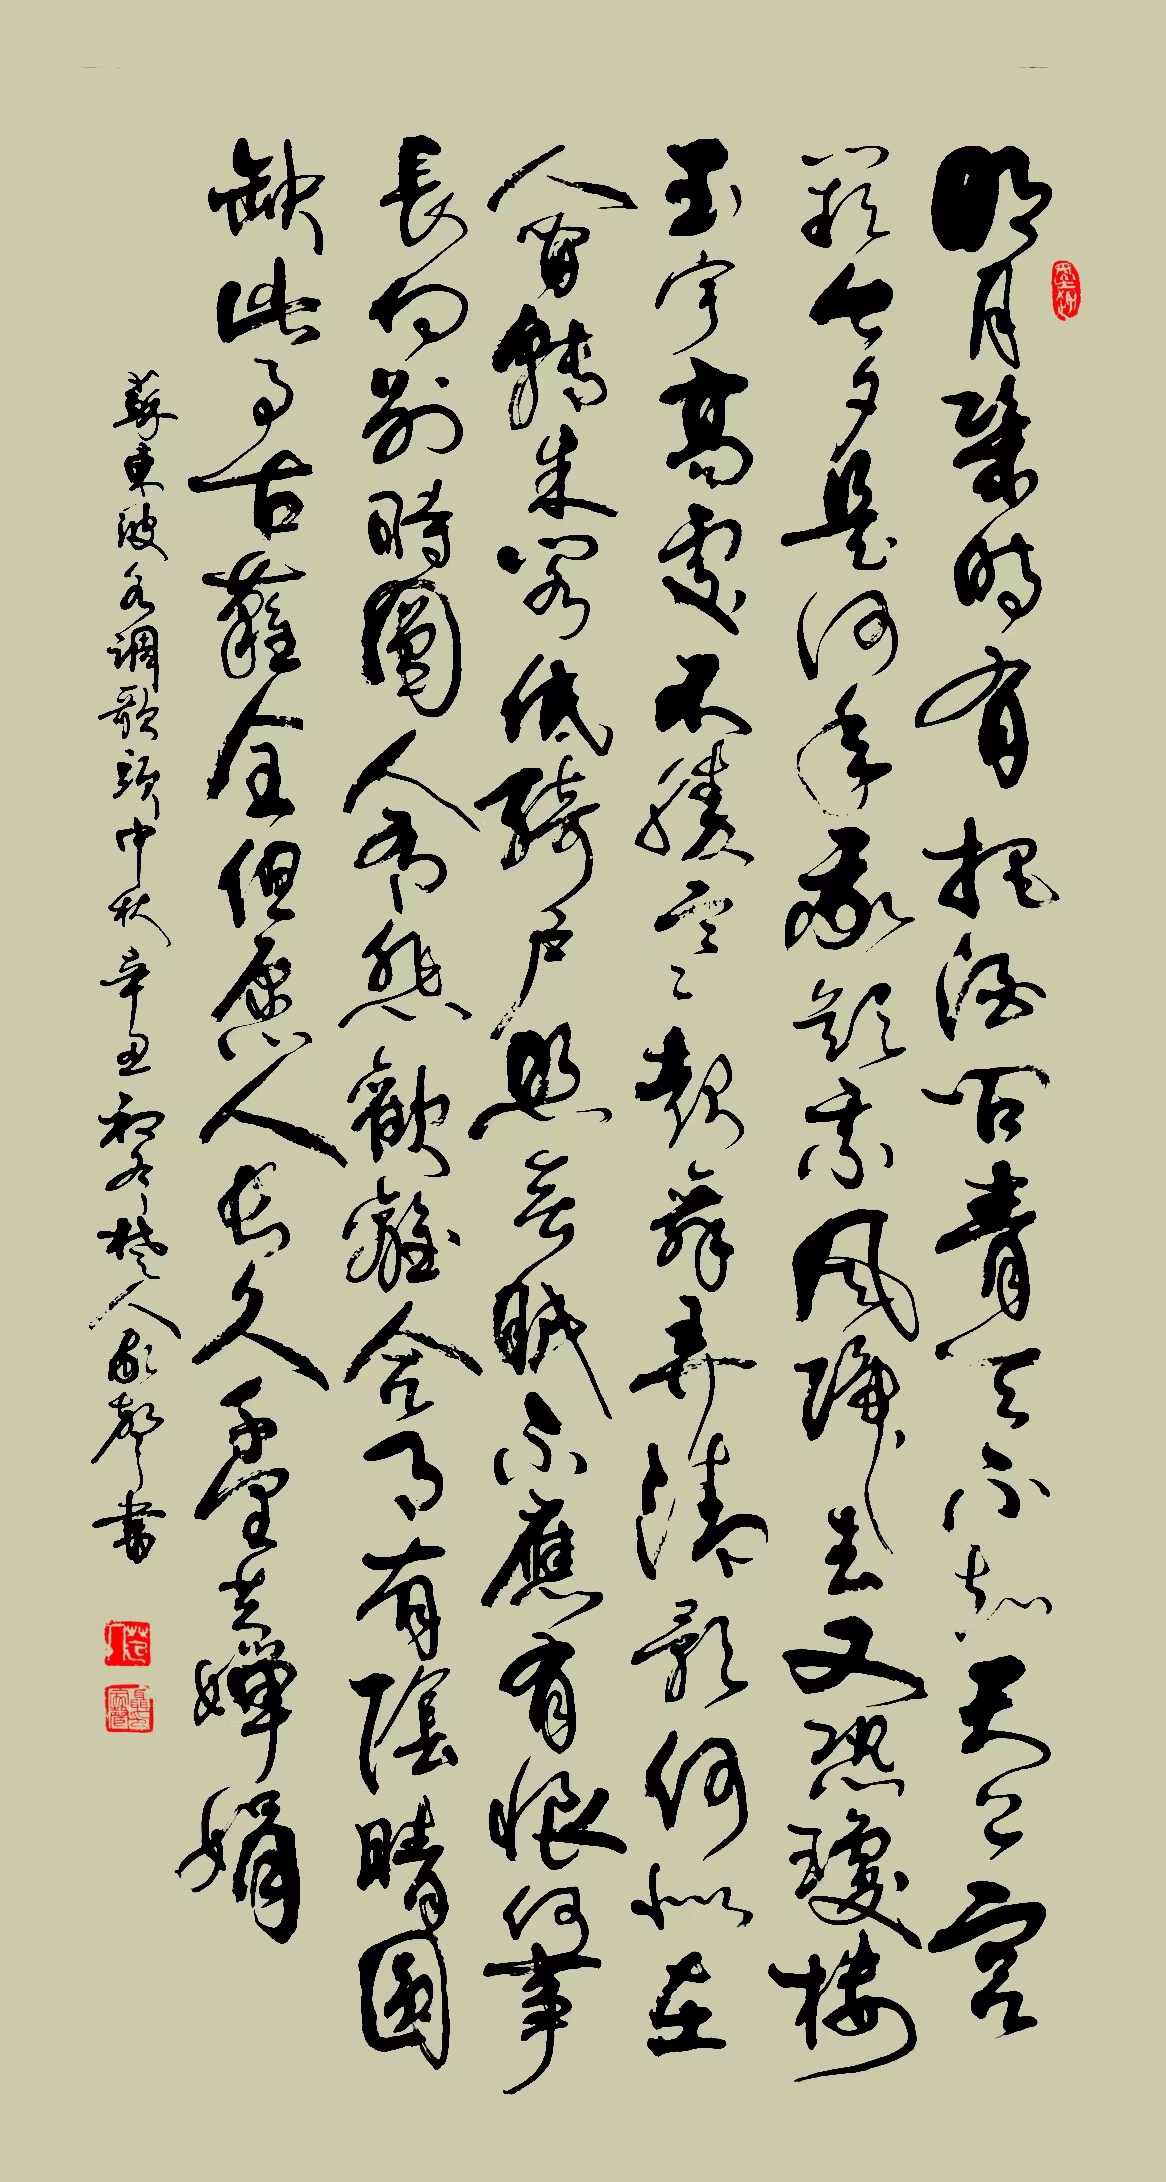 明月幾時有把酒問青天不知天上宮
闕今夕是何年我欲乘風歸去又恐瓊樓
玉宇高處不勝寒起舞弄清影何似在
人間轉朱閣低綺戶照無眠不應有恨何事
長向別時圓人有悲歡離合月有陰晴圓
缺此事古難全但願人長久千里共嬋娟
蘇東坡水調歌頭中秋辛丑初冬楚人書